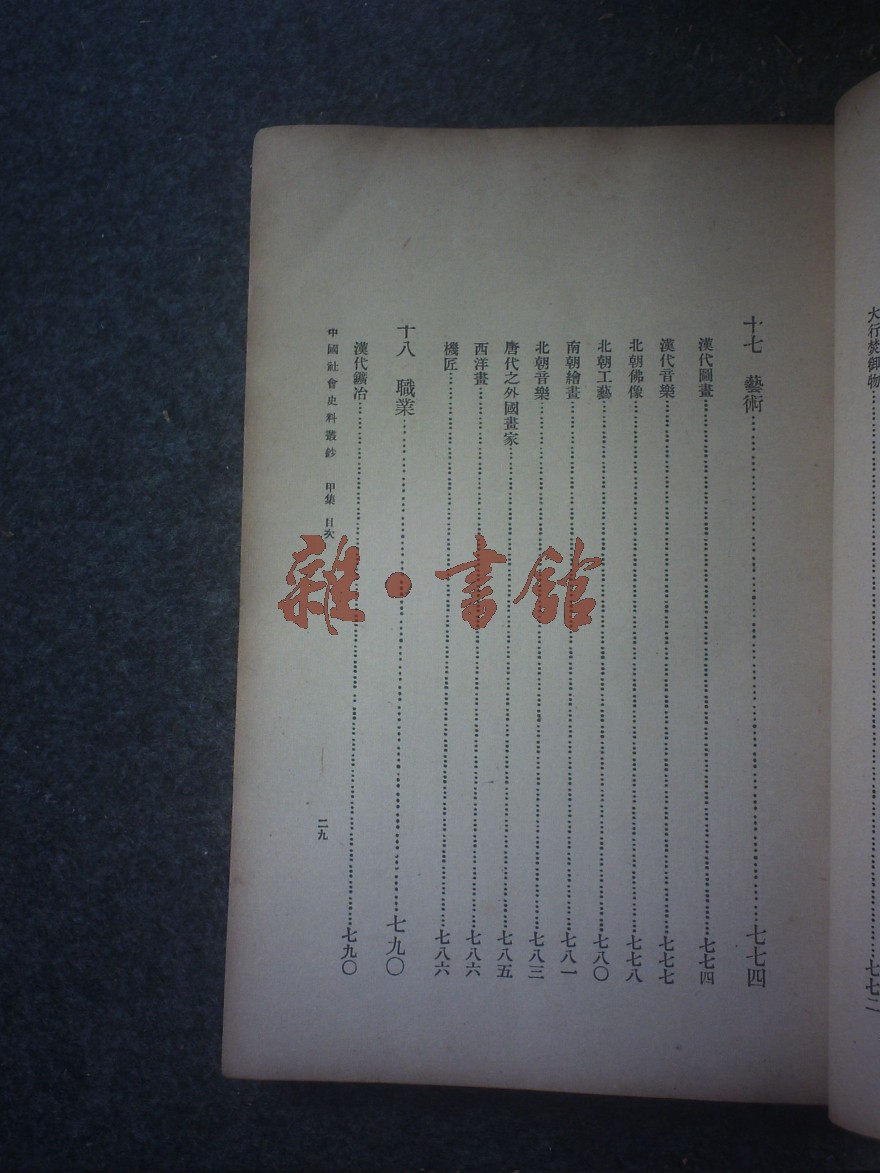 大行焚御物……七七二
十七　藝術……七七四
漢代圖畫……七七四
漢代音樂……七七七
北朝佛像……七七八
北朝工藝……七八〇
南朝繪畫……七八一
北朝音樂……七八三
唐代之外國畫家……七八五
西洋畫……七八六
機匠……七八六
十八　職業……七九〇
漢代鑛冶……七九〇
中國社會史料叢鈔　甲集　目次
二九
雜·書館